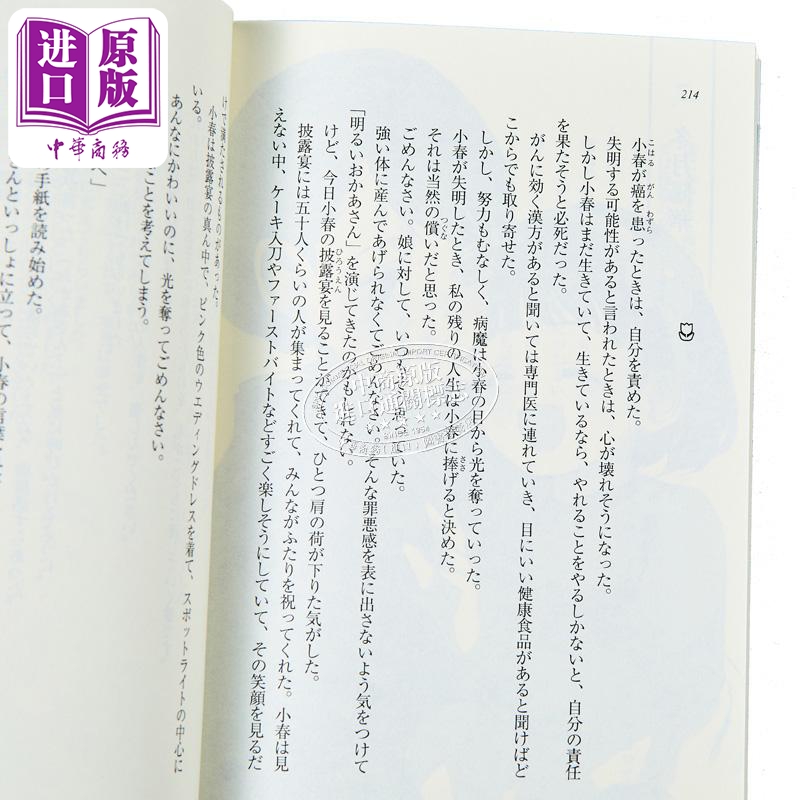 进口
原版
中華商務
214
小春が癌を患ったときは、自分を責めた。
失明する可能性があると言われたときは、心が壊れそうになった。
しかし小春はまだ生きていて、生きているなら、やれることをやるしかないと、自分の責任
を果たそうと必死だった。
がんに効く漢方があると聞いては専門医に連れていき、目にいい健康食品があると聞けばど
こからでも取り寄せた。
しかし、努力もむなしく、病魔は小春の目から光を奪っていった。
小春が失明したとき、私の残りの人生は小春に捧げると決めた。
それは当然の償いだと思った。
ごめんなさい。娘に対して、いつも思っていた。
強い体に産んであげられなくてごめんなさい。そんな罪悪感を表に出さないよう気をつけて
「明るいおかあさん」を演じてきたのかもしれない。
けど、今日小春の披露宴を見ることができて、ひとつ肩の荷が下りた気がした。
披露宴には五十人くらいの人が集まってくれて、みんながふたりを祝ってくれた。小春は見
えない中、ケーキ入刀やファーストバイトなどすごく楽しそうにしていて、その笑顔を見るだ
けで満たされるものがあった。
小春は披露宴の真ん中で、ピンク色のウエディングドレスを着て、スポットライトの中心に
いる。
あんなにかわいいのに、光を奪ってごめんなさい。
ことを考えてしまう。
へ」
手紙を読み始めた。
さんといっしょに立って、小春の言葉